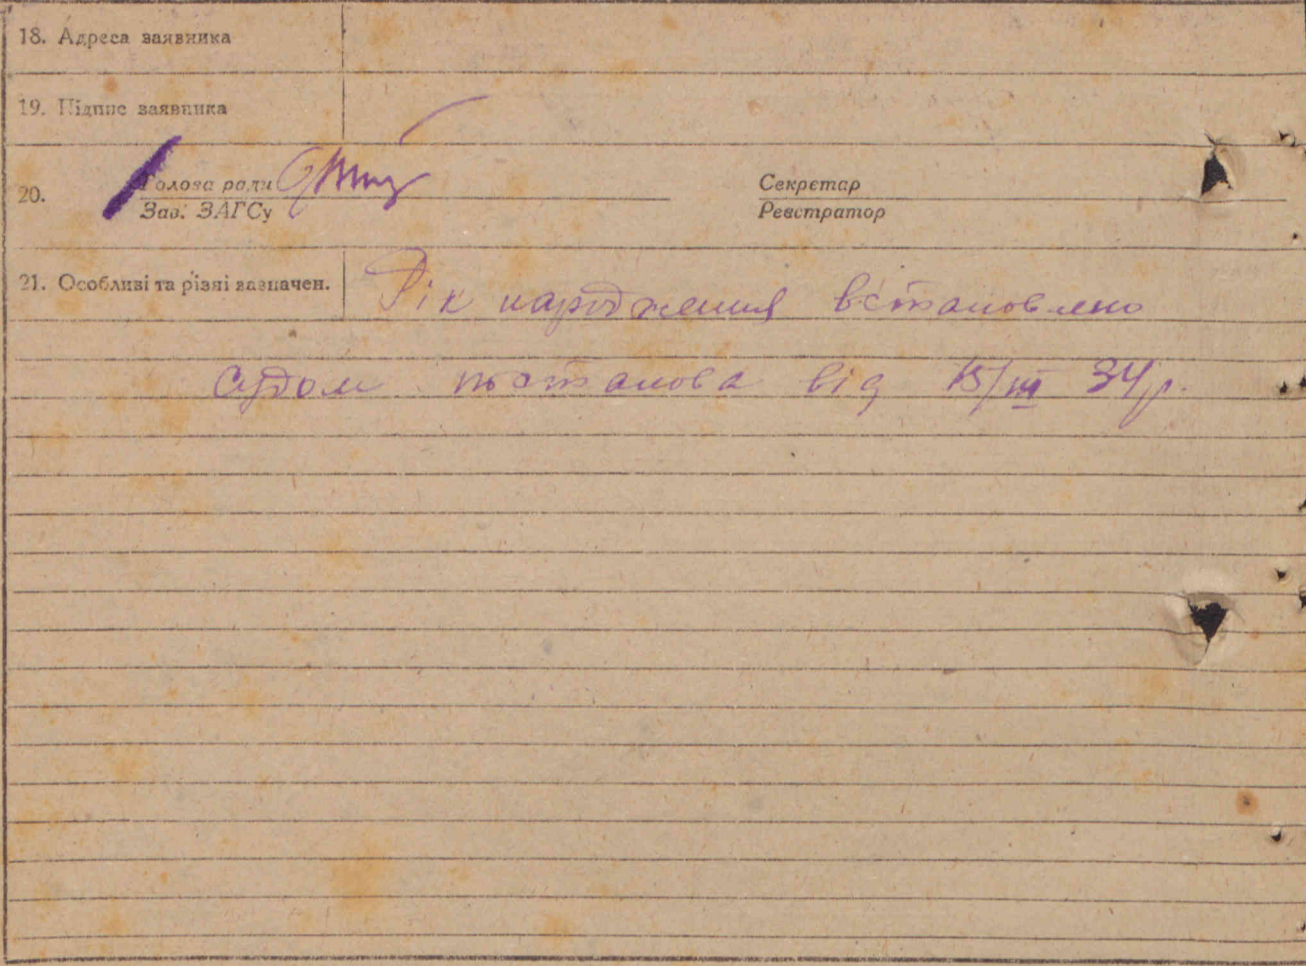 18. Адреса заявника
19. Підпис заявника
20. Голова ради Секретар
Зав. ЗАГСу Реєстратор
21. Особливі та різні зазначен. Рік народження встановлено
судом постанова від 15/III 34р.